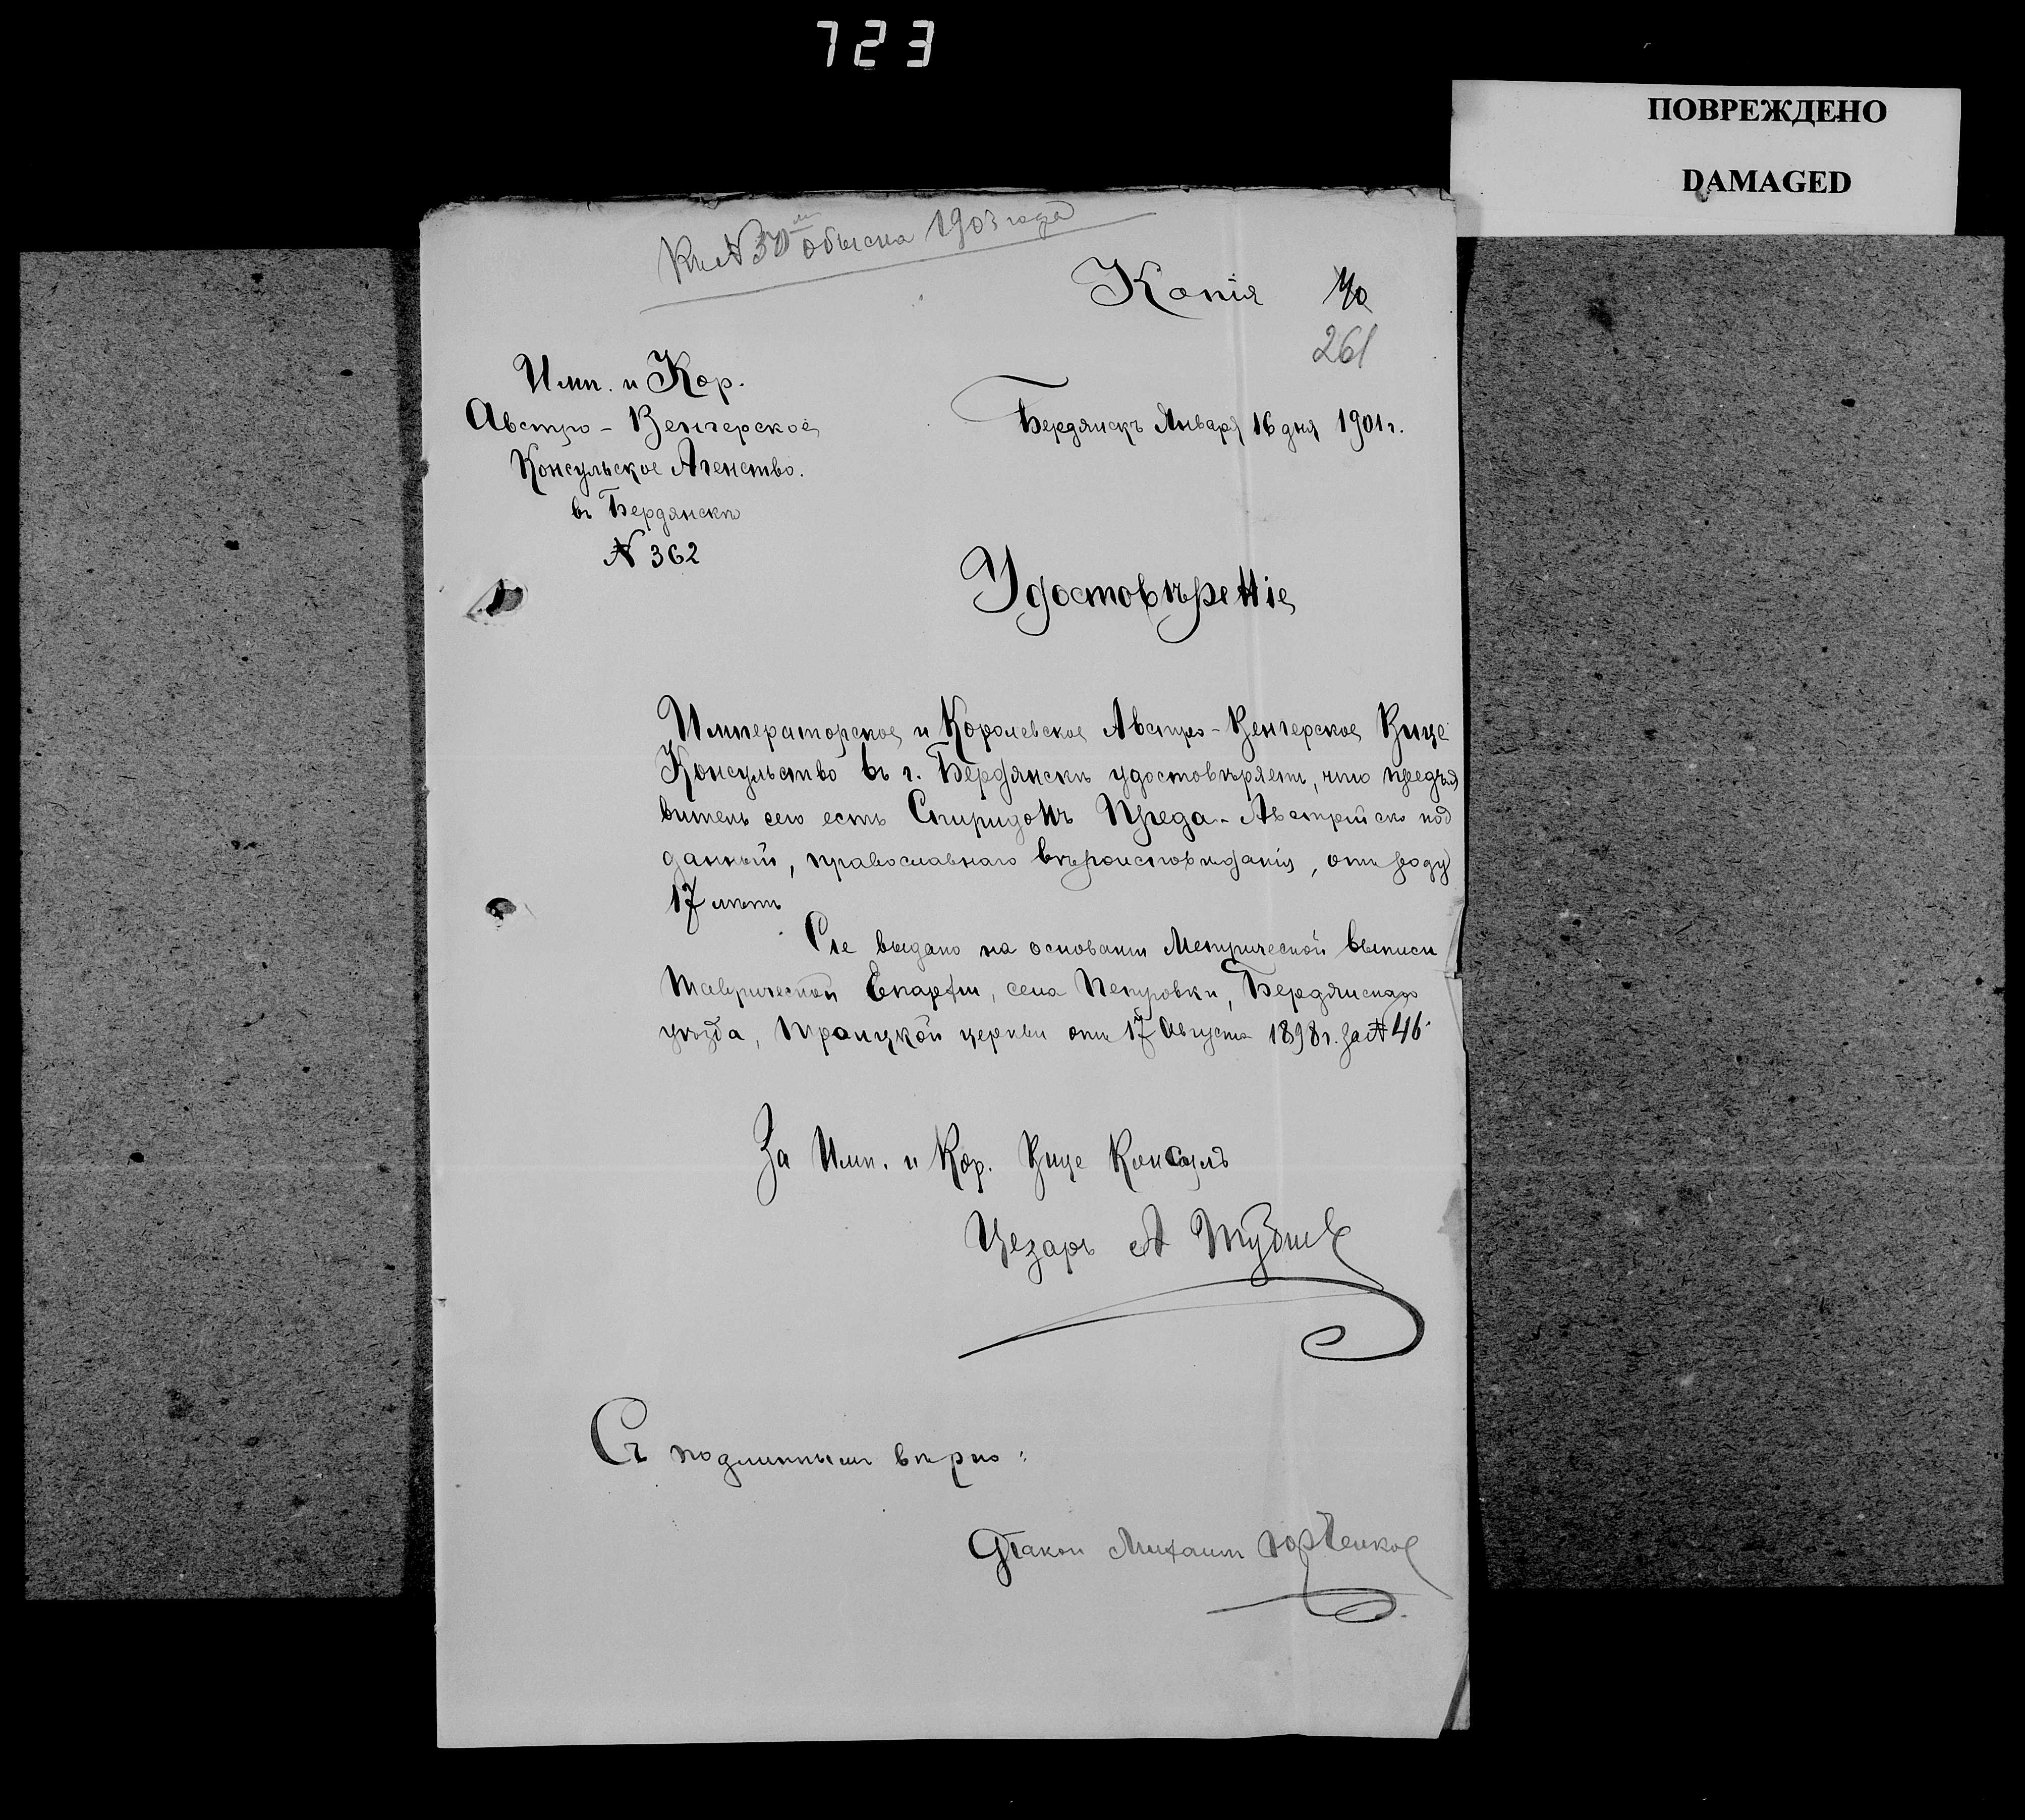 723
ПОВРЕЖДЕНО
DAMAGED
Къ № 30му обыска 1903 года
Копія
261
Имп. и Кор.
Австро - Венгерское
Консульское Агенство.
въ Бердянскѣ
№ 362
Бердянскъ Января 16 дня 1901 г.
Удостовѣреніе
Императорское и Королевское Австро - Венгерское Вице
Консульство въ г. Бердянскѣ удостовѣряетъ, что предъя
витель сего есть Спиридонъ Преда - Австрійско под
данный, православнаго вѣроисповѣданія, отъ роду
17 лѣтъ
Сіе выдано на основаніи Метрической выписи
Таврической Епархіи, села Петровки, Бердянскаго
уѣзда, Троицкой церкви отъ 17 Августа 1898 г. за № 46
За Имп. и Кор. Вице Консулъ
Цезарь А
Съ подлиннымъ вѣрно:
Діаконъ Михаилъ Юрченко